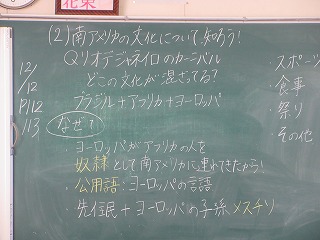 花束
(2)南アメリカの文化について知ろう!
Qリオデジャネイロのカーニバル
どこの文化が混ざってる?
ブラジル+アフリカ+ヨーロッパ
なぜ?
・ヨーロッパがアフリカの人を
奴隷として南アメリカに連れてきたから!
・公用語:ヨーロッパの言語
・先住民+ヨーロッパの子孫 メスチソ
12/
/12
P112
113
・スポーツ
・食事
・祭り
・その他